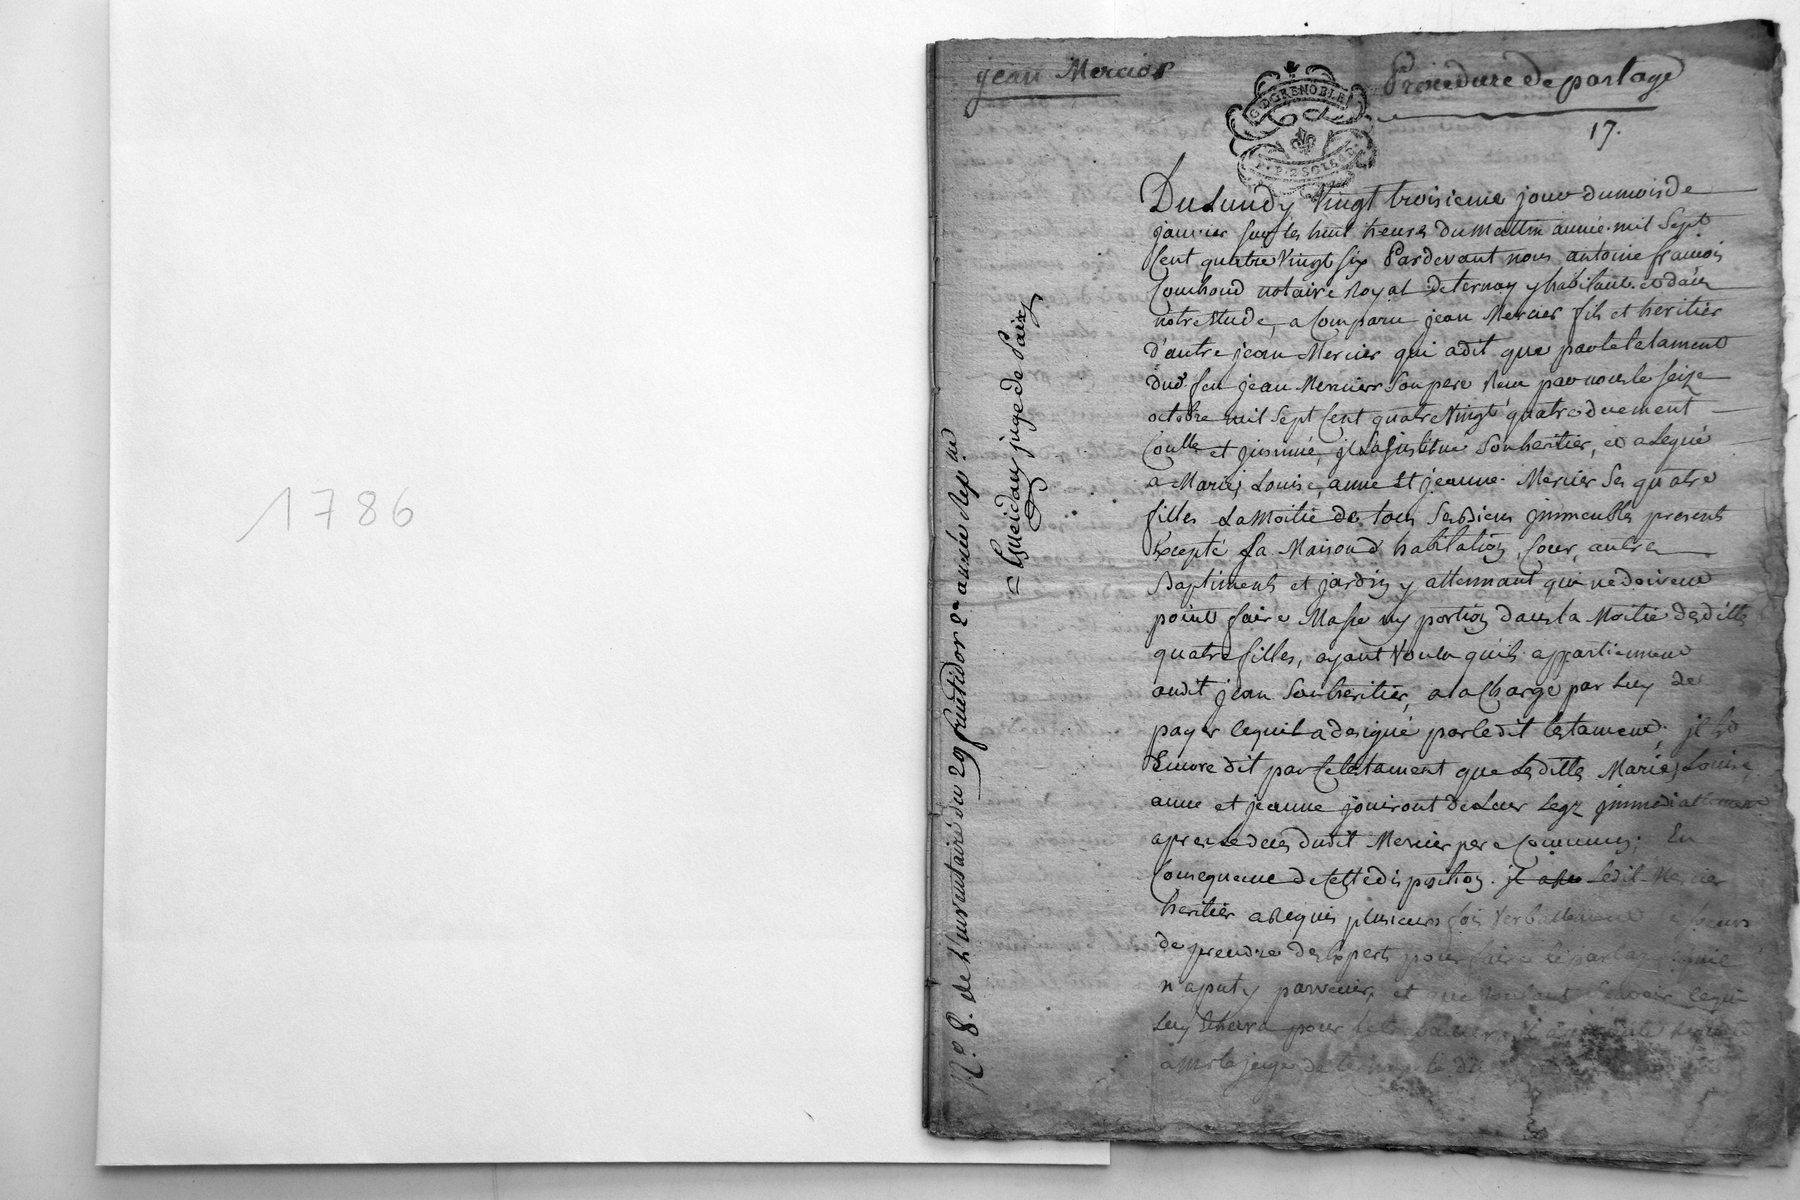 1786
jean Mercier
Procedure de partage
G. D GRENOBLE
17.
Du Lundy Vingt troisieme jour du mois de
janvier sur les huit heures du Mattin année mil Sept
Cent quatre Vingt six Pardevant nous antoine francois
notaire Royal de ternay y habitant et dans
notre Etude, a Comparu jean Mercier fils et heritier
d'autre jean Mercier qui a dit que par le testament
dud. feu jean Mercier Son pere Recu par nous le seize
octobre mil Sept Cent quatre Vingt quatre duement
Conlle et jnsinué, jl La jnstitué Son heritier, et a Legué
a Marie, Louise, anne Et jeanne Mercier Ses quatre
filles La Moitié de tous Ses biens jmmeubles presents
Excepté Sa Maison d'habitation Cour, autres
Baptiments et jardin y attennant qui ne doivent
point faire Masse ny portion dans la Moitié desdittes
quatre filles, ayant Voulu qu'ils appartiennent
audit jean Son heritier, a la Charge par Luy de
payer ce quil a designé par ledit testament, jl Est
Encore dit par Ce testament que Lesdittes Marie, Louise,
anne et jeanne jouiront de Leur Legz jmmediattement
apres Le deces dudit Mercier pere Commun; En
Consequence de Cette disposition. Ledit Mercier
heritier a Requis plusieurs fois Verballement
de prendre des Experts pour faire le partage
n'a put y parvenir, et que Voulant Scavoir ce qui
Luy pour
a Mr le juge de
N.o 8. de L'inventaire du 29 fructidor 2.e année Rep.ne
= Gueidan juge de Paix